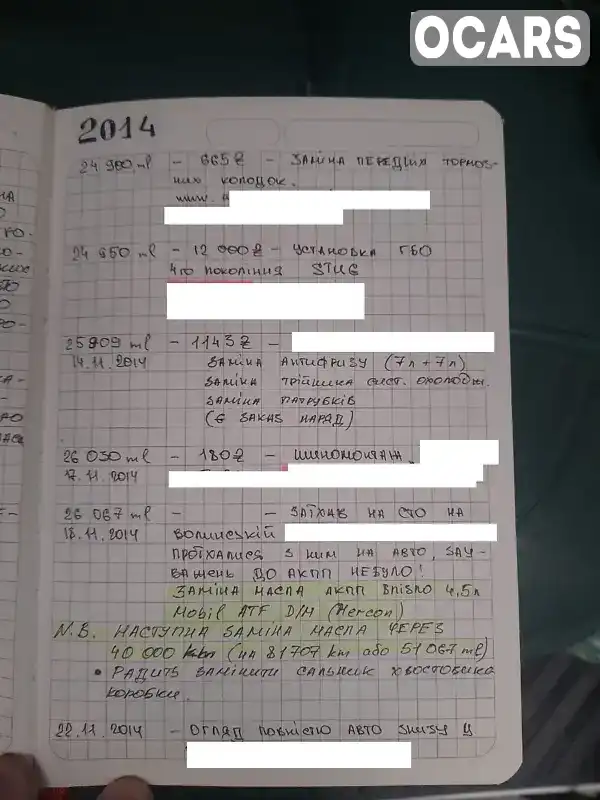 OCARS
2014
24 900 ml - 665₴ - ЗАМІНА ПЕРЕДНІХ ТОРМОЗ-
НИХ КОЛОДОК.
24 950 ml - 12 000₴ - УСТАНОВКА ГБО
4го покоління STUG
25 909 ml - 1143₴ -
14.11.2014 ЗАМІНА АНТИФРИЗУ (7л+7л)
ЗАМІНА ТРІЙНИКА СИСТ. ОХОЛОДЖ.
ЗАМІНА ПАТРУБКІВ
(Є ЗАКАЗ НАРЯД)
26 030 ml - 180₴ - ШИНОМОНТАЖ.
17.11.2014
26 067 ml - - ЗАЇХАВ НА СТО НА
18.11.2014 ВОЛИНСЬКІЙ
ПРОЇХАЛИСЯ З НИМ НА АВТО, ЗАУ-
ВАЖЕНЬ ДО АКПП НЕБУЛО!
ЗАМІНА МАСЛА АКПП ВЛІЗЛО 4,5л
Mobil ATF D/M (Mercon)
N.B. НАСТУПНА ЗАМІНА МАСЛА ЧЕРЕЗ
40 000 km (на 81707 km або 51 067 ml)
• РАДИТЬ ЗАМІНИТИ САЛЬНИК ХВОСТОВИКА
КОРОБКИ.
22.11.2014 - ОГЛЯД ПОВНІСТЮ АВТО ЗНИЗУ У